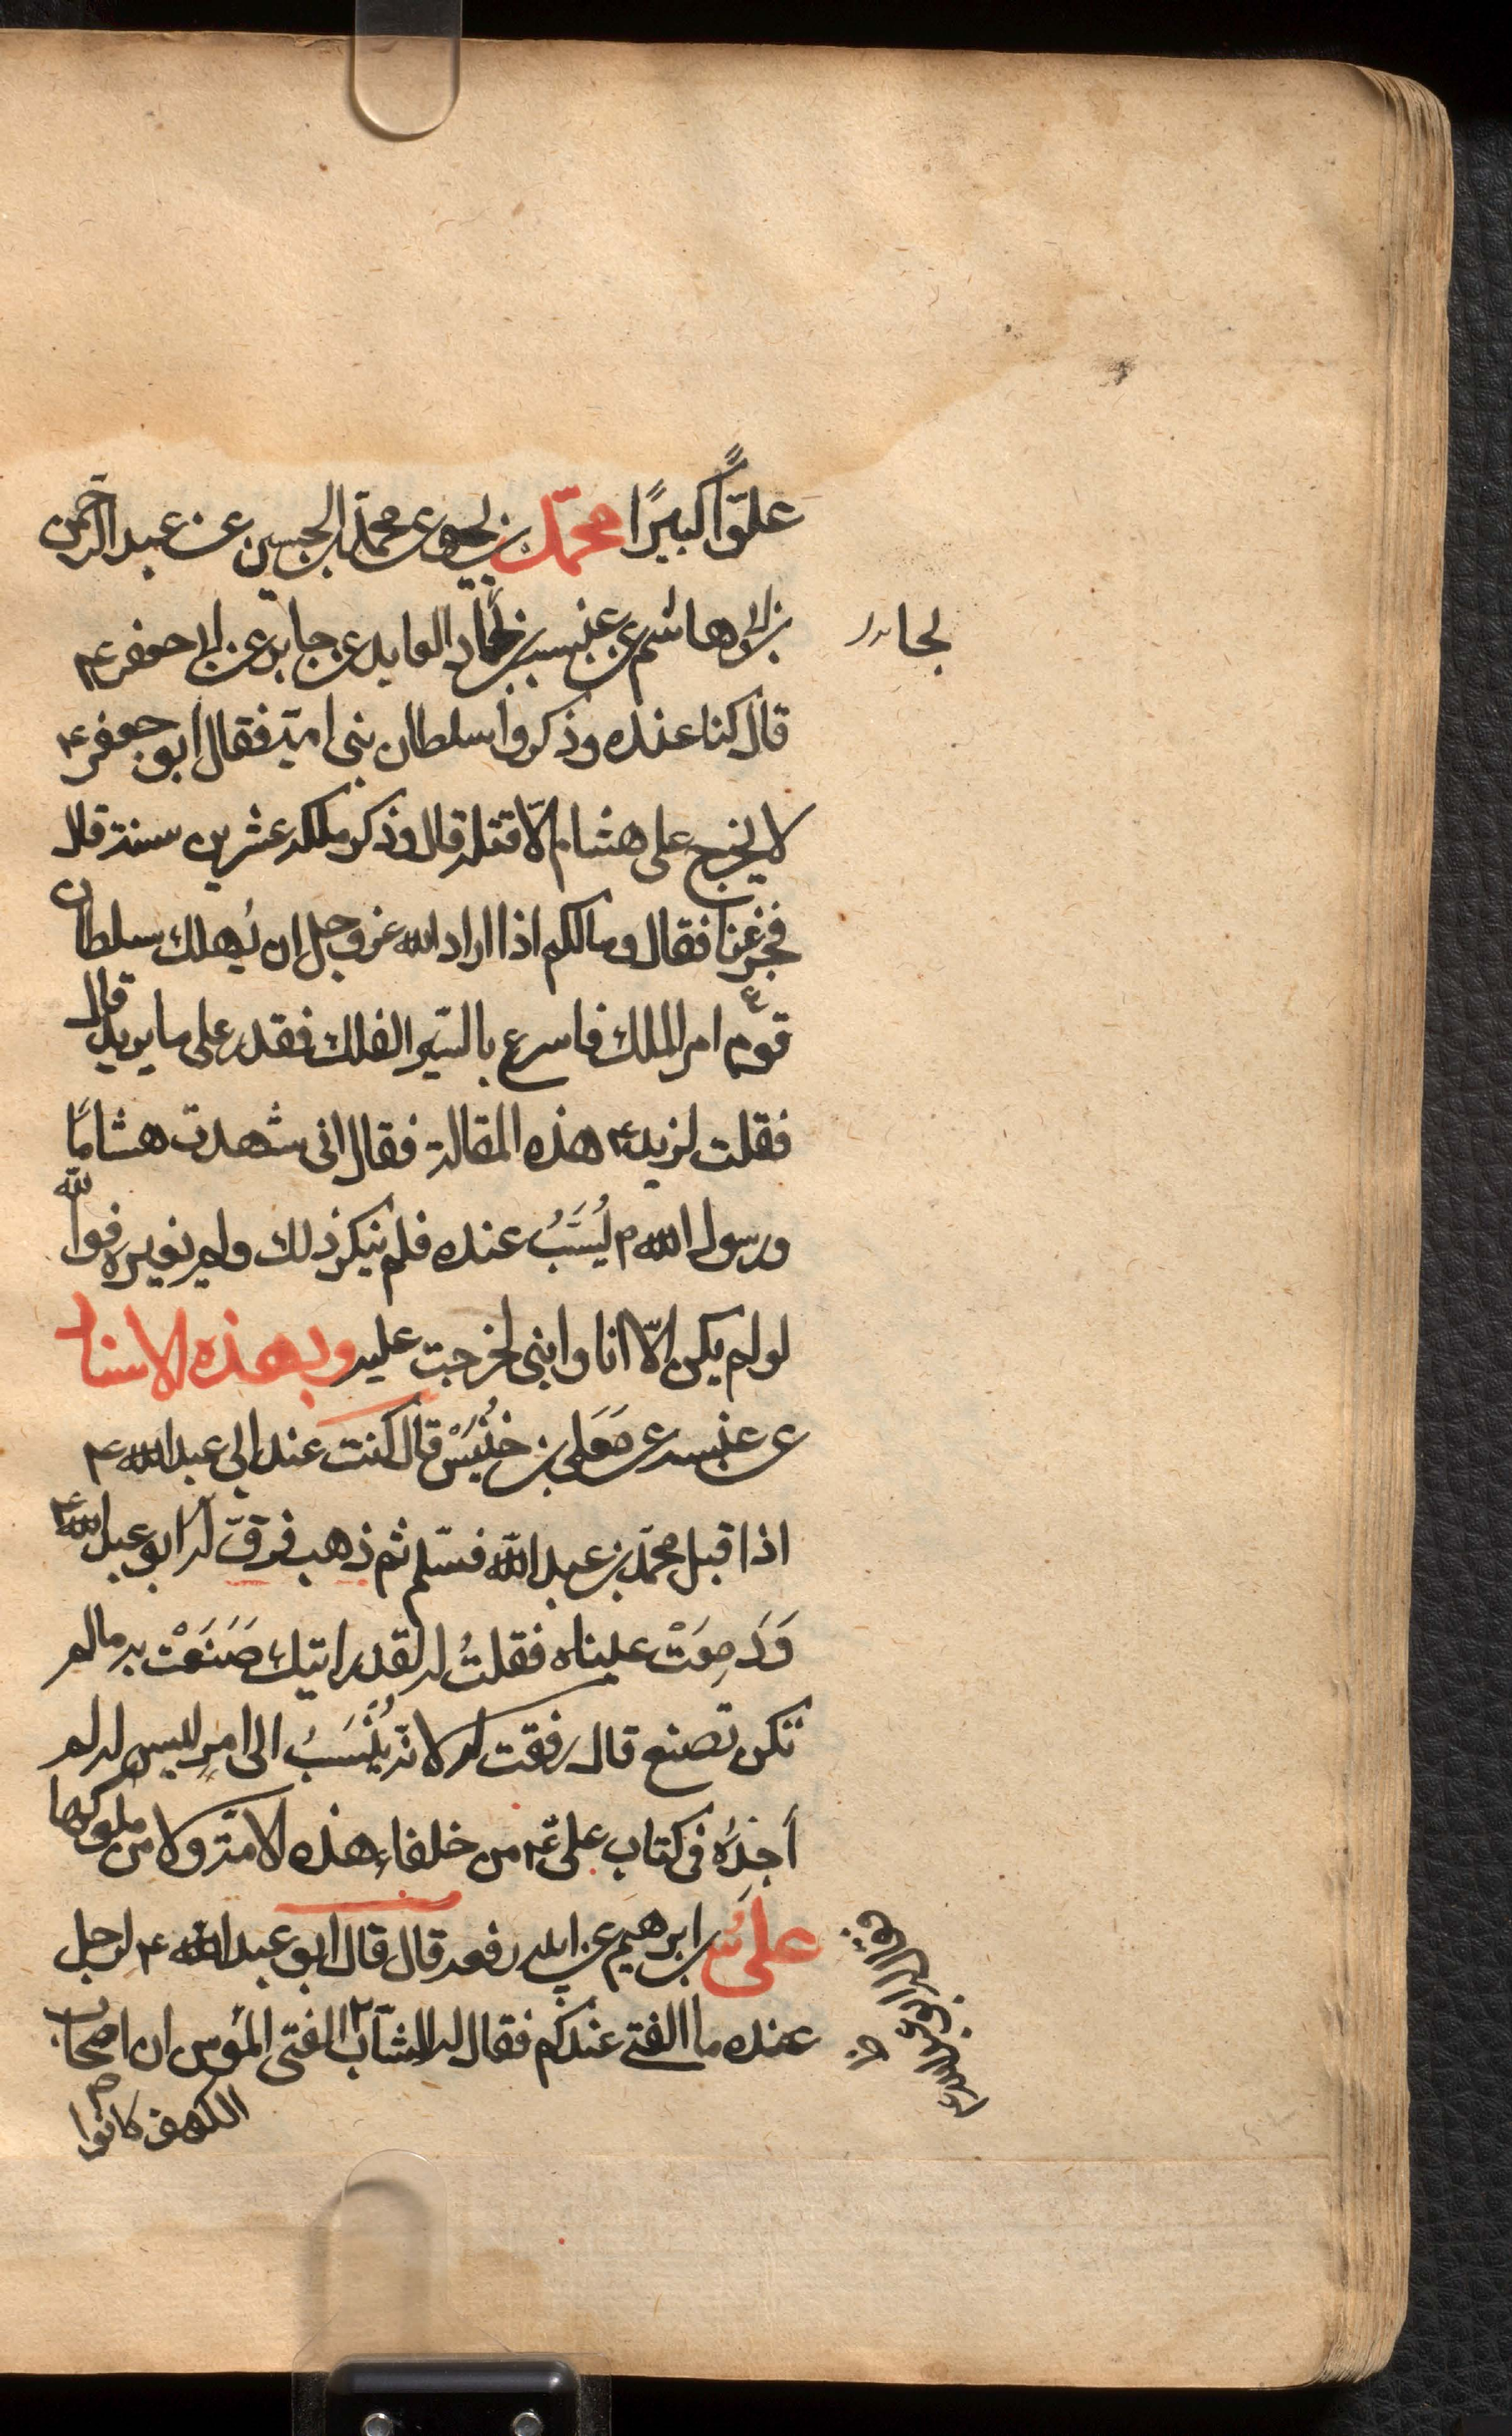 علوّاً كبيرًا محمّد بن يحيى عن محمّد بن الحسين عن عبد الرحمن
بن ابى هاشم عن عنبسه بن بجاد العابد عن جابر عن ابى جعفر ع
قال كنا عنده وذكروا سلطان بنى اميّه فقال ابو جعفر ع
لا يخرج على هشام الّا قتله قال وذكر ملكه عشرين سنة قال
فجزعنا فقال ومالكم اذا اراد الله عز وجل ان يُهلك سلطان
قوم امر الملك فاسرع بالسّير الفلك فقدر على ما يريد قال
فقلت لزيد ع هذه المقالة فقال انى شهدت هشامًا
ورسول الله ص يُسَبُّ عنده فلم ينكر ذلك ولم يغيره فوالله
لو لم يكن الّا انا وابنى لخرجت عليه وبهذه الاسناد
عن عنبسه عن معلى بن خُنَيْسْ قال كنت عند ابى عبد الله ع
اذ اقبل محمّد بن عبد الله فسلّم ثم ذهب فرقّ له ابو عبد الله ع
وَدَمِعَتْ عيناه فقلتُ له لقد رايتك صَنَعْت به مالم
تكن تصنع قال رققت له لانّه يُنْسَبُ الى امرٍ ليس له لم
أجِدْهُ فى كتاب علىّ ع من خلفاء هذه الامّة ولا من ملوكها
علىُّ بن ابرهيم عن ابيه رفعه قال قال ابو عبد الله ع لرجل
عنده ما الفتى عندكم فقال له الشّاب الفتى المؤمن ان اصحاب
الكهف كانوا